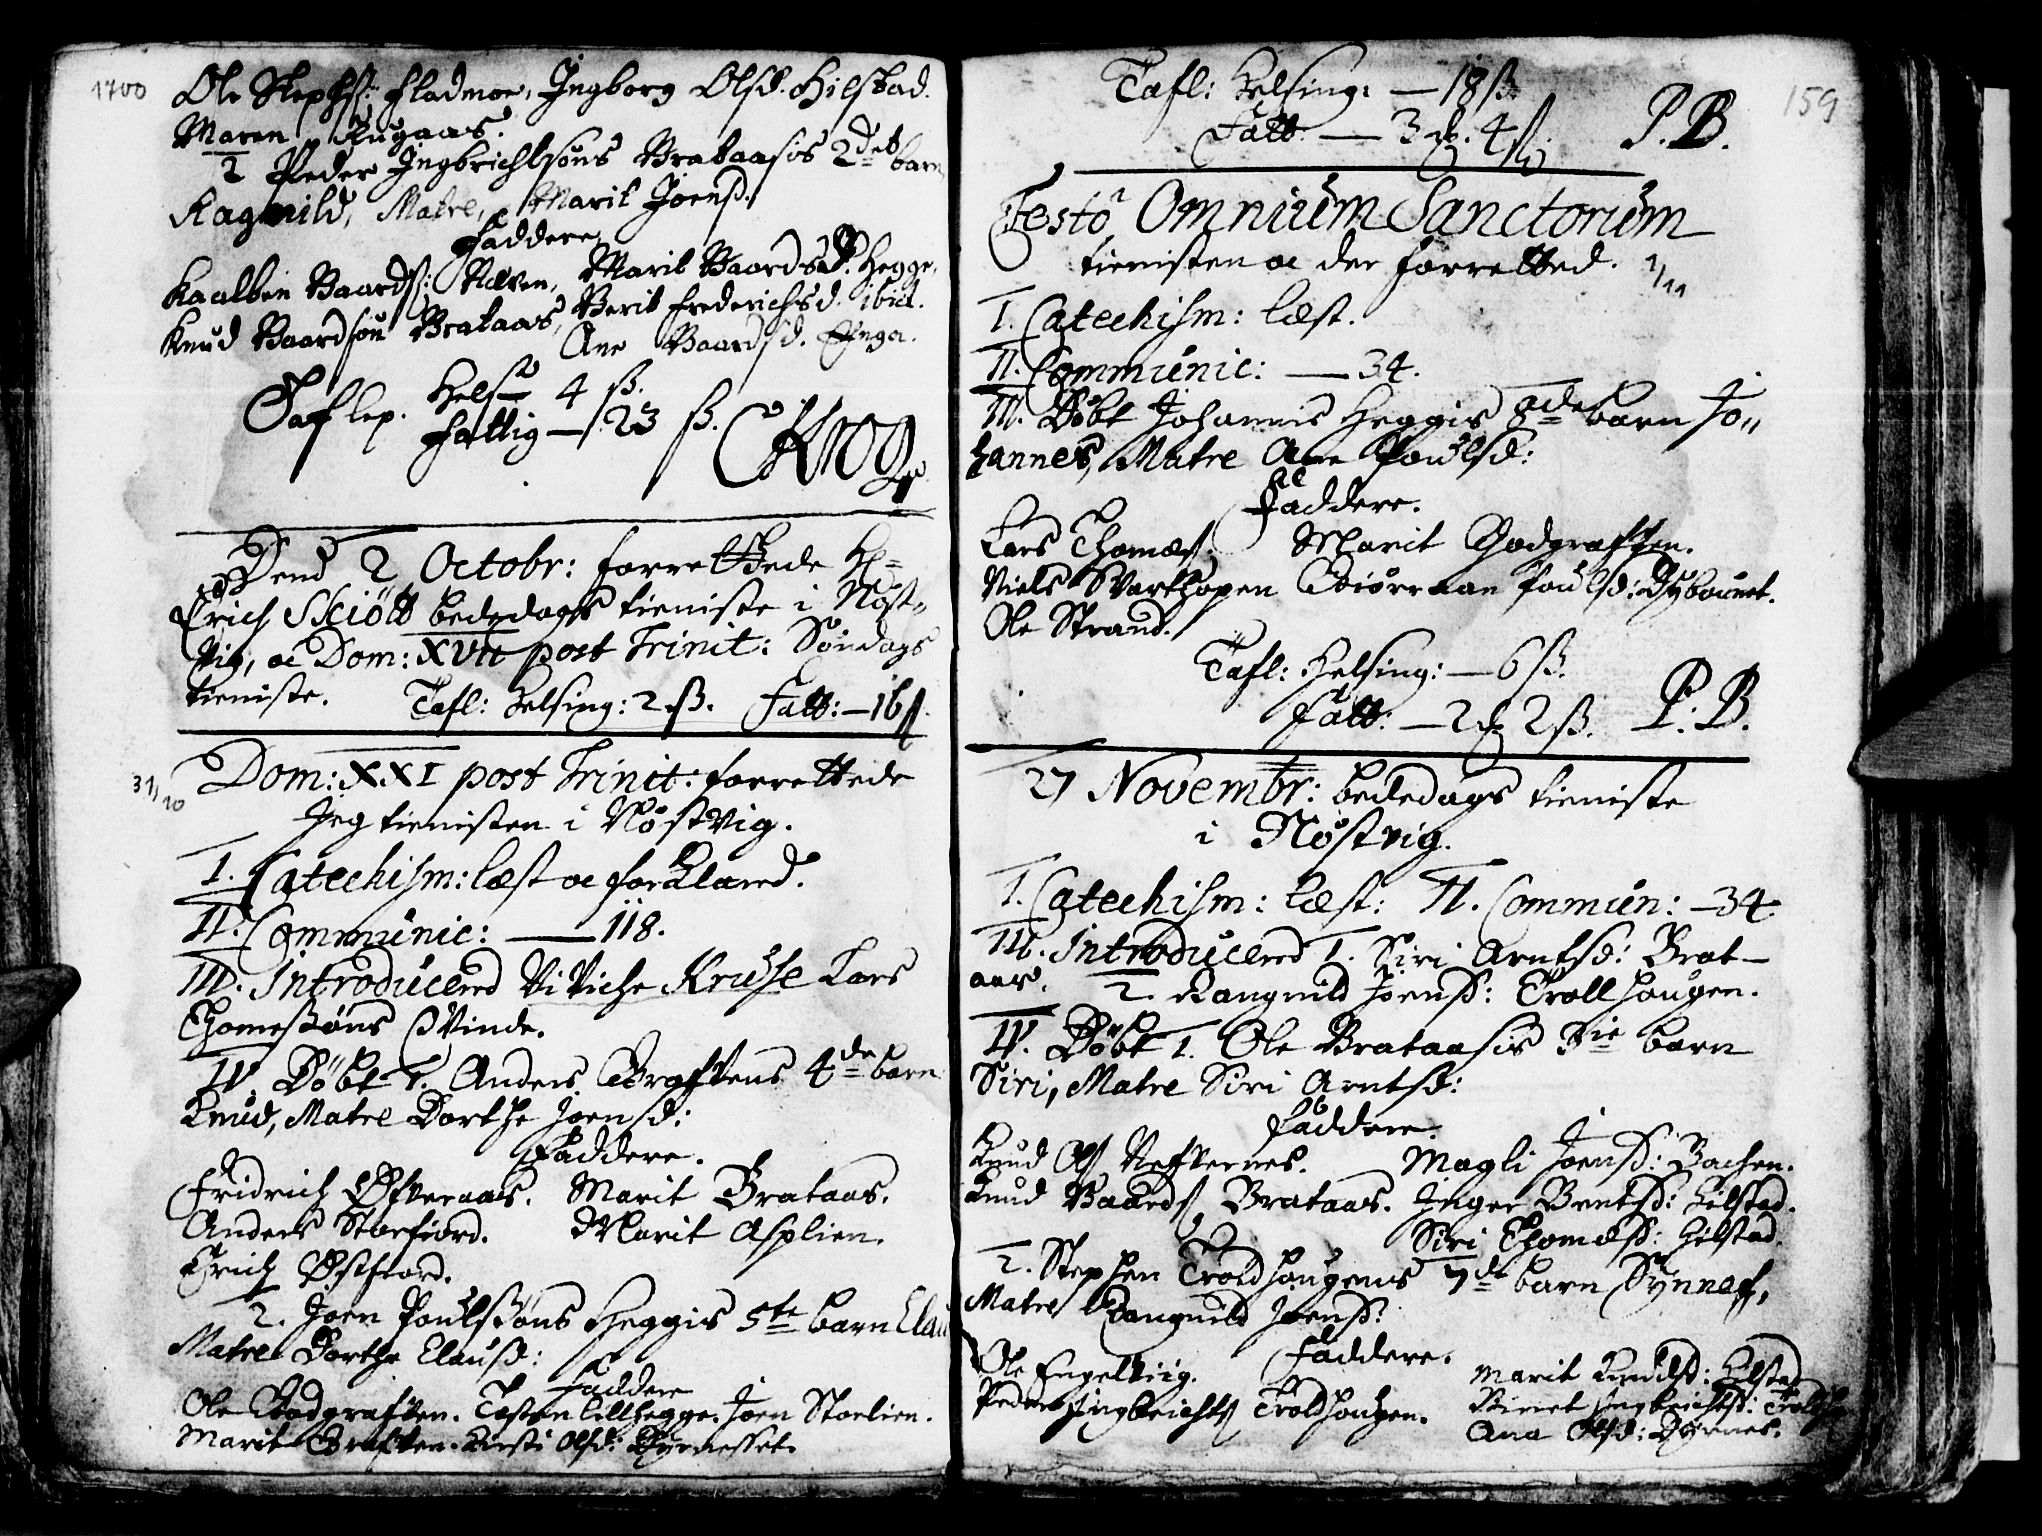 1700
Ole Stephs: Fladmoe, Ingborg Olsd. Hilstad.
Maren Rugaas.
2 Peder Ingbrichtsøns Brataasis 2det barn
Ragnild, Matre, Marit Joensd.
Faddere,
Kaalbein Baards: Næven, Marit Baordsd. Hegge,
Knud Baardsøn Brataas, Berit Frederichsd. ibid.
Ane Baardsd. Jnga.
Taflep. Hels 4 ß.
Fattig — 23 ß. CKrog
Dend 2 Octobr: forrettede H=
Erich Skiött bededags tieniste i Nöst-
vig, oc Dom: XVII post Trinit: Søndags
tieniste. Tafl: Helsing: 2 ß. Fatt: — 16 ß.
31/10 Dom: XXI post Trinit: forrettede
Jeg tienisten i Nöstvig.
I. Catechism: læst oc forklared.
II. Communic: — 118.
III. Introducered ViViche Kruse Lars
Thomesøns qvinde.
IV. Döbt 1. Anders Graftens 4de barn
Knud, Matre Dorthe Joensd:
Faddere.
Fridrich Øfveraas. Marit Brataas.
Anders Storfiord. Marit Asplien.
Erich Østfiord.
2. Joen Poulssøns Heggis 5te barn Clau
Matre Dorthe Clausd:
Faddere
Ole Godgraften. Tosten Lillhegge. Joen Stoelien.
Marit Graften. Kirsti Olsd: Dyrnesset.
159
Tafl: Helsing: — 18 ß.
Fatt — 3 . 4 ß. P.B.
Festo Omnium Sanctorum
tienisten oc der forretted. 1/11
I. Catechism: læst.
II. Communic: — 34.
III. Döbt Johannis Heggis 8de barn Jo,,
hannes, Matre Ane Poulsd:
Faddere.
Lars Thomæs. Marit Godgraften.
Niels Svarthopen Adiørnaan Poulsd: Dybbunet.
Ole Strand.
Tafl: Helsing: — 6 ß.
Fatt: — 2 2 ß. P.B.
27 Novembr: bededags tieniste
i Nöstvig.
I. Catechism: læst: II. Commun: — 34
III. Introducered 1. Siri Arntsd: Brat-
aas. 2. Rangnild Joensd: Trollhaugen.
IV. Döbt 1. Ole Brataasis 3ie barn
Siri, Matre Siri Arntsd:
Faddere.
Knud Ols Refsernes. Magli Joensd: Bachen.
Knud Baards Brataas. Inger Berntsd: Hilstad.
Siri Thomesd: Hilstad.
2. Stephen Troldhaugens 7de barn Synnef,
Matre Rangnild Joensd:
Faddere.
Ole Engelviig. Marit Knudsd: Hilstad
Peder Ingbrichts Troldhaugen. Berret Ingbrichtsd: Troldh
Ana Olsd: Dyrnes.